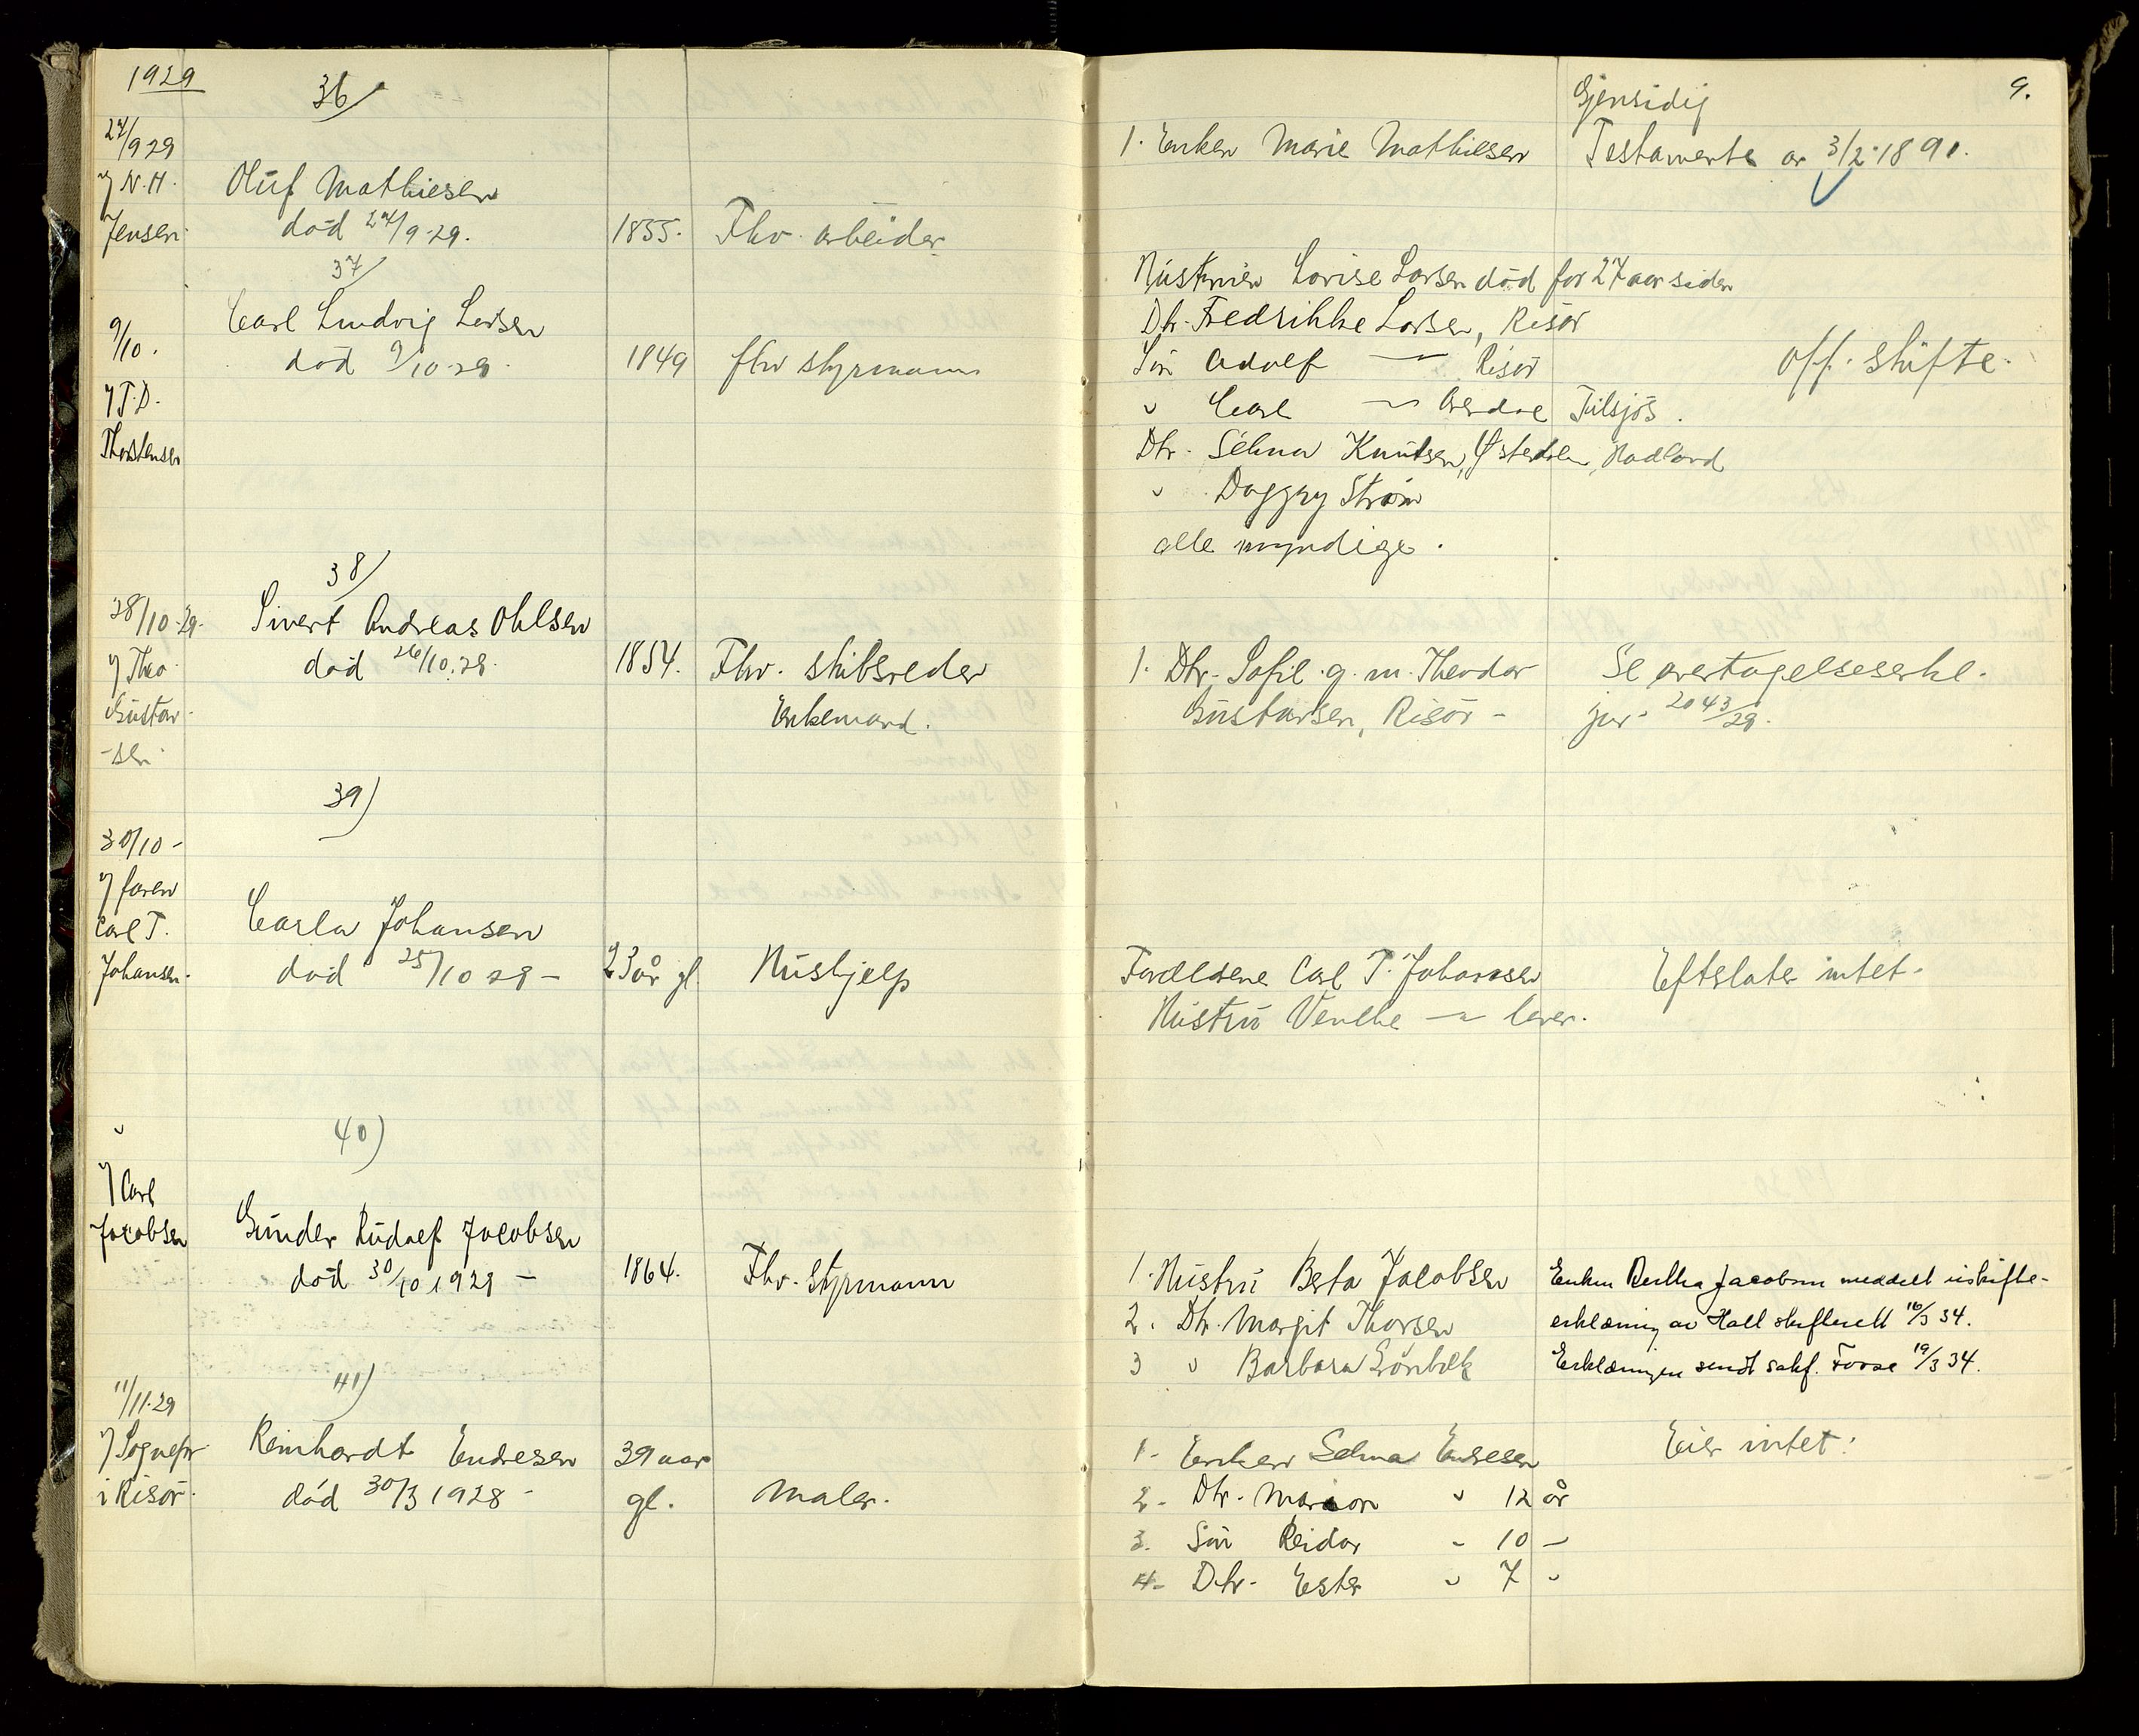 1929
36/
24/9 29
N. H.
Jensen
Oluf Mathiesen
død 24/9-29.
1855.
Fhv. arbeider
1. Enken Marie Mathiesen
Gjensidig
Testamente av 3/2-1891.
9.
37/
9/10.
T. D.
Thorstensen
Carl Ludvig Larsen
død 9/10-29.
1849
fhv styrmann
Hustruen Lovise Larsen død for 27 aar siden
Dtr. Fredrikke Larsen, Risør
Søn Adolf — Risør
" Carl —
Dtr. Selma Knutsen, Østedalen,
" Daggny Strøm
alle myndige.
Off. skifte.
38/
28/10-29.
Theo
Gustav
-sen
Sivert Andreas Ohlsen
død 26/10.29.
1854.
Fhv. skibsreder
Enkemand.
1. Dtr. Sofie g. m. Theodor
Gustavsen, Risør -
Se overtagelseserkl.
jur. 2043/29.
39)
30/10 -
faren
Carl T.
Johansen.
Carla Johansen
død 25/10 29 -
23 år gl.
Hushjelp
Foreldrene Carl T. Johansen
Hustru Venche — lever.
Efterlater intet.
"
40)
Carl
Jacobsen
Gunder Rudolf Jacobsen
død 30/10 1929 -
1864.
Fhv. styrmann
1. Hustru Berta Jacobsen
2. Dtr. Margit Thorsen
3 " Barbara Grønbek
Enken Bertha Jacobsen meddelt uskifte-
erklæring av Holt skifterett 16/3 34.
Erklæringen sendt sakf. Foose 19/3 34.
41)
11/11-29
Sognepr
i Risør.
Reinhardt Endresen
død 30/3 1928 -
39 aar
gl.
Maler.
1- Enken Selma Endresen
2- Dtr. Marion " 12 år
3. Søn Reidar - 10 -
4- Dtr. Ester " 7 "
Eier intet.